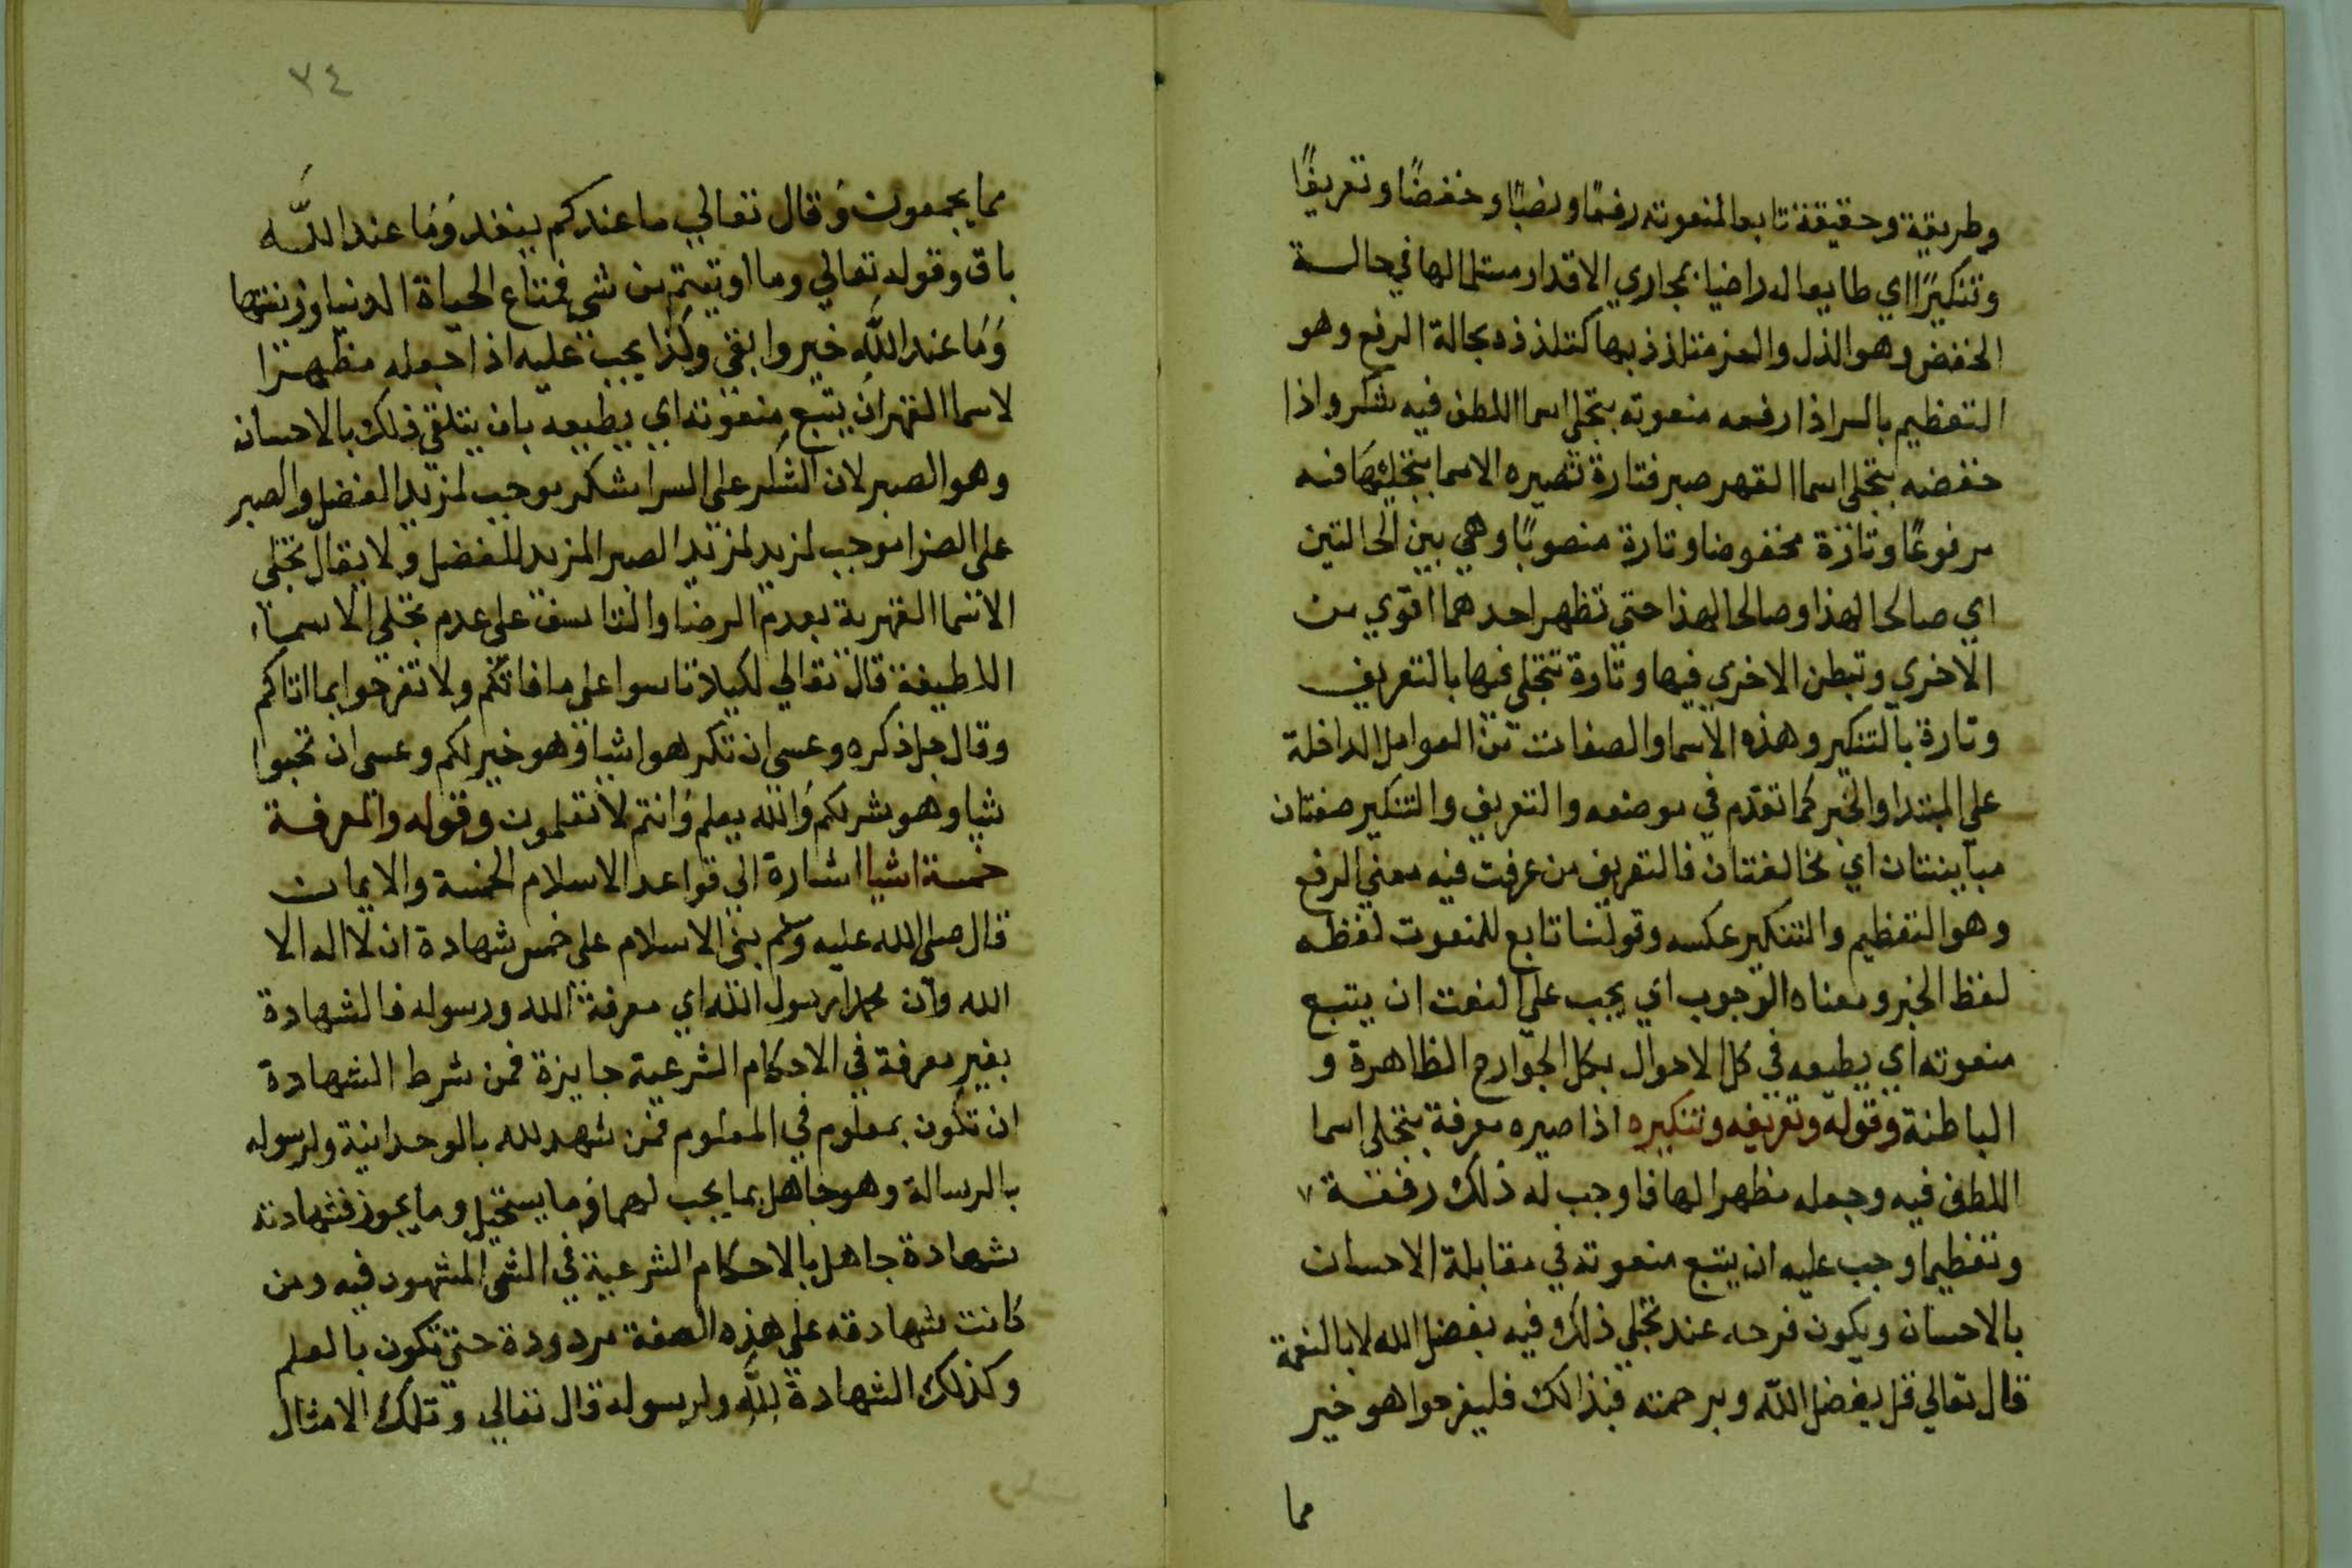 وطريقة وحقيقة تابعا لمنعوته رفعًا ونصبًا وخفضًا وتعريفًا
وتنكيرًا اي طايعا له راضيا بمجاري الاقدار مستلما لها في حالــة
الخفض وهو الذل والعز متلذذ بها كتلذذه بحالة الرفع وهو
التعظيم بالسر اذا رفعه منعوته بتجلي اسما اللطف فيه شكر واذا
خفضه بتجلي اسما القهر صبر فتارة تصيره الاسما بتجليتها فيه
مرفوعًا وتارة مخفوضا وتارة منصوبًا وهي بين الحالتين
اي صالحا لهذا وصالحا لهذا حتي تظهر احدهما اقوي من
الاخري وتبطن الاخري فيها وتارة تتجلي فيها بالتعريف
وتارة بالتنكير وهذه الاسما والصفات من العوامل الداخلة
علي المبتدا والخبر كما تقدم في موضعه والتعريف والتنكير صفتان
مباينتان اي مخالفتان فالتعريف من عرفت فيه معني الرفع
وهو التعظيم والتنكير عكسه وقولنا تابع للمنعوت لفظه
لفظ الخبر ومعناه الوجوب اي يجب علي النعت ان يتبع
منعوته اي يطيعه في كل الاحوال بكل الجوارح الظاهرة و
الباطنة وقوله وتعريفه وتنكيره اذا صيره معرفة بتجلي اسما
اللطف فيه وجعله مظهرا لها فاوجب له ذلك رفعــة
وتعظيما وجب عليه ان يتبع منعوته في مقابلة الاحسان
بالاحسان ويكون فرحه عند تجلي ذلك فيه بفضل الله لا بالنعمة
قال تعالي قل بفضل الله وبرحمته فبذالك فليفرحوا هو خير
مما
٧٤
مما يجمعون وقال تعالي ما عندكم ينفد وما عند اللــه
باق وقوله تعالي وما اوتيتم من شي فمتاع الحياة الدنيا وزينتها
وما عند الله خير وابقي وكذا يجب عليه اذا جعله مظهرا
لاسما القهر ان يتبع منعوته اي يطيعه بان يتلقي ذلك بالاحسان
وهو الصبر لان الشكر علي السرا شكر يوجب لمزيد الفضل والصبر
علي الضرا موجب لمزيد لمزيد الصبر المزيد للفضل ولا يقال تجلي
الاسما القهرية بعدم الرضا والتاسف علي عدم تجلي الاسمــاء
اللطيفة قال تعالي لكيلا تاسوا علي ما فاتكم ولا تفرحوا بما اتاكم
وقال جل ذكره وعسي ان تكرهوا شيا وهو خير لكم وعسي ان تحبوا
شيا وهو شر لكم والله يعلم وانتم لا تعلمون وقوله والمعرفــة
خمسة اشيا اشارة الي قواعد الاسلام الخمسة والايمان
قال صلي الله عليه وسلم بني الاسلام علي خمس شهادة ان لا اله الا
الله وان محمدا رسول الله اي معرفة الله ورسوله فالشهادة
بغير معرفة في الاحكام الشرعية جايزة فمن شرط الشهادة
ان تكون بمعلوم في المعلوم فمن شهد لله بالوحدانية ولرسوله
بالرسالة وهو جاهل بما يجب لهما وما يستحيل وما يجوز فشهادته
شهادة جاهل بالاحكام الشرعية في الشي المشهود فيه ومن
كانت شهادته علي هذه الصفة مردودة حتي تكون بالعلم
وكذلك الشهادة لله ولرسوله قال تعالي وتلك الامثال